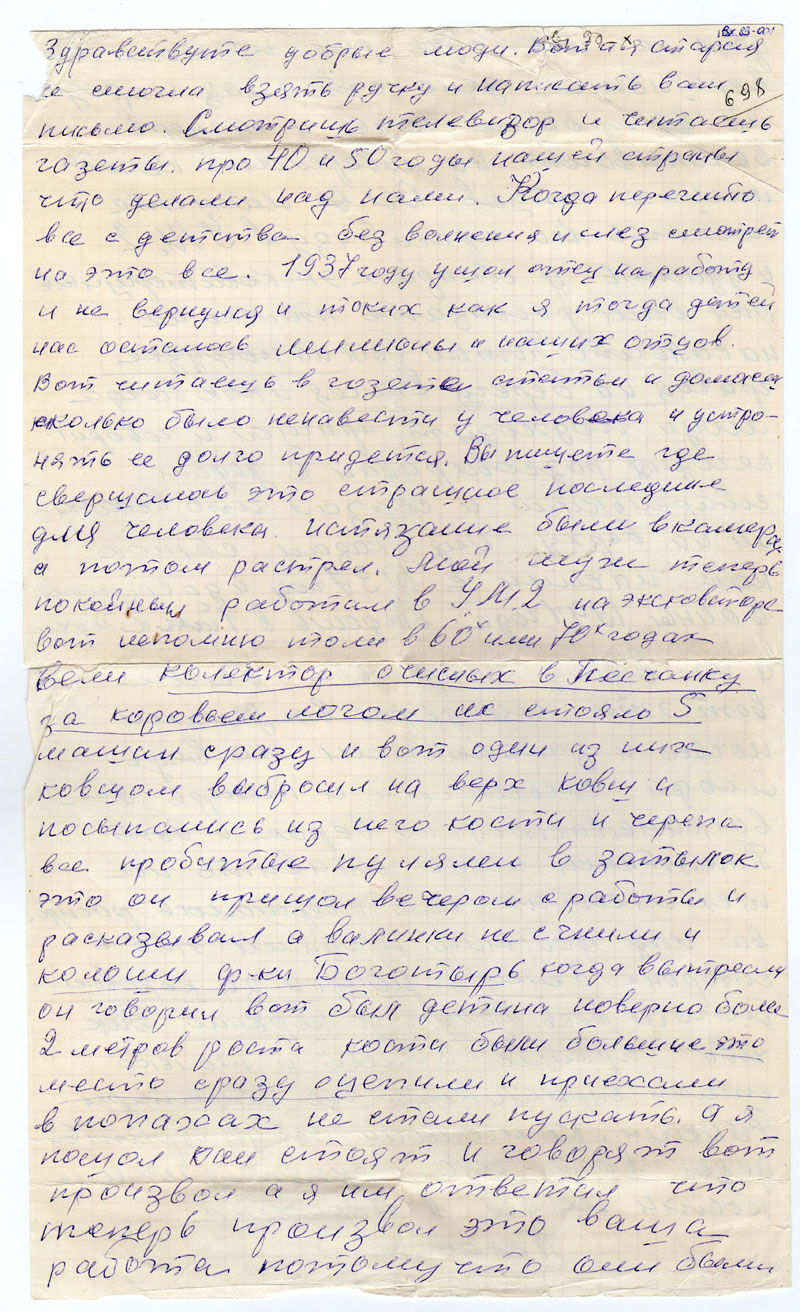 Вх 83-001
698
Здравствуте добрые люди. Вот и я старая
не смогла взять ручку и написать вам
письмо. Смотришь телевизор и читаешь
газеты. про 40 и 50 годы нашей страны
что делали над нами. Когда пережито
все с детства без волнения и слез смотреть
на это все. 1937 году ушол отец на работу
и не вернулся и токих как я тогда детей
нас осталось милионы и наших отцов.
Вот читаешь в газетеи статьи и домаеш
сколько было ненавести у человека и устро-
нять ее долго придется. Вы пишете где
свершалось это страшное последние
для человека. истязание были в камерах
а потом растрел. Мой муж теперь
покойный работал в У.М.2 на эксковаторе
вот непомню толи в 60х или 70х годах
вели колектор очисных в Песчанку
за коровьем логом их стояло 5
машин сразу и вот один из них
ковшом выбросил на верх ковш и
посыпались из него кости и черепа
все пробитые пулями в затылок
это он пришол вечером с работы и
расказывал а валинки не сгнили и
колоши ф-ки Боготырь когда вытресли
он говорил вот был детина новерно боле
2 метров роста кости были большие это
место сразу оцепили и приехали
в попахах не стали пускать. а я
пошол они стоят и говорят вот
произвол а я им ответил что
теперь произвол это ваша
работа потому что они были